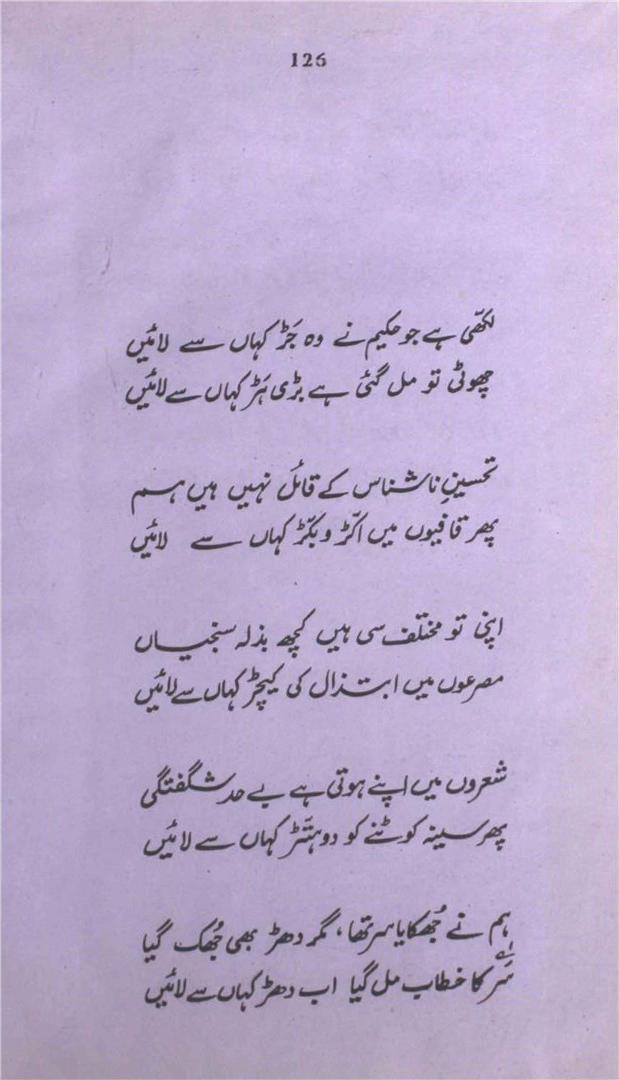 126
لکھّی ہے جو حکیم نے وہ جَڑ کہاں سے لائیں
چھوٹی تو مل گئی ہے بڑی ہَڑ کہاں سے لائیں
تحسینِ ناشناس کے قائل نہیں ہیں ہم
پھر قافیوں میں اکّڑ و بکّڑ کہاں سے لائیں
اپنی تو مختلف سی ہیں کچھ بذلہ سنجیاں
مصرعوں میں ابتذال کی کیچڑ کہاں سے لائیں
شعروں میں اپنے ہوتی ہے بے حد شگفتگی
پھر سینہ کوٹنے کو دوہتّڑ کہاں سے لائیں
ہم نے جُھکایا سر تھا، مگر دھڑ بھی جُھک گیا
سَر کا خطاب مل گیا اب دھڑ کہاں سے لائیں